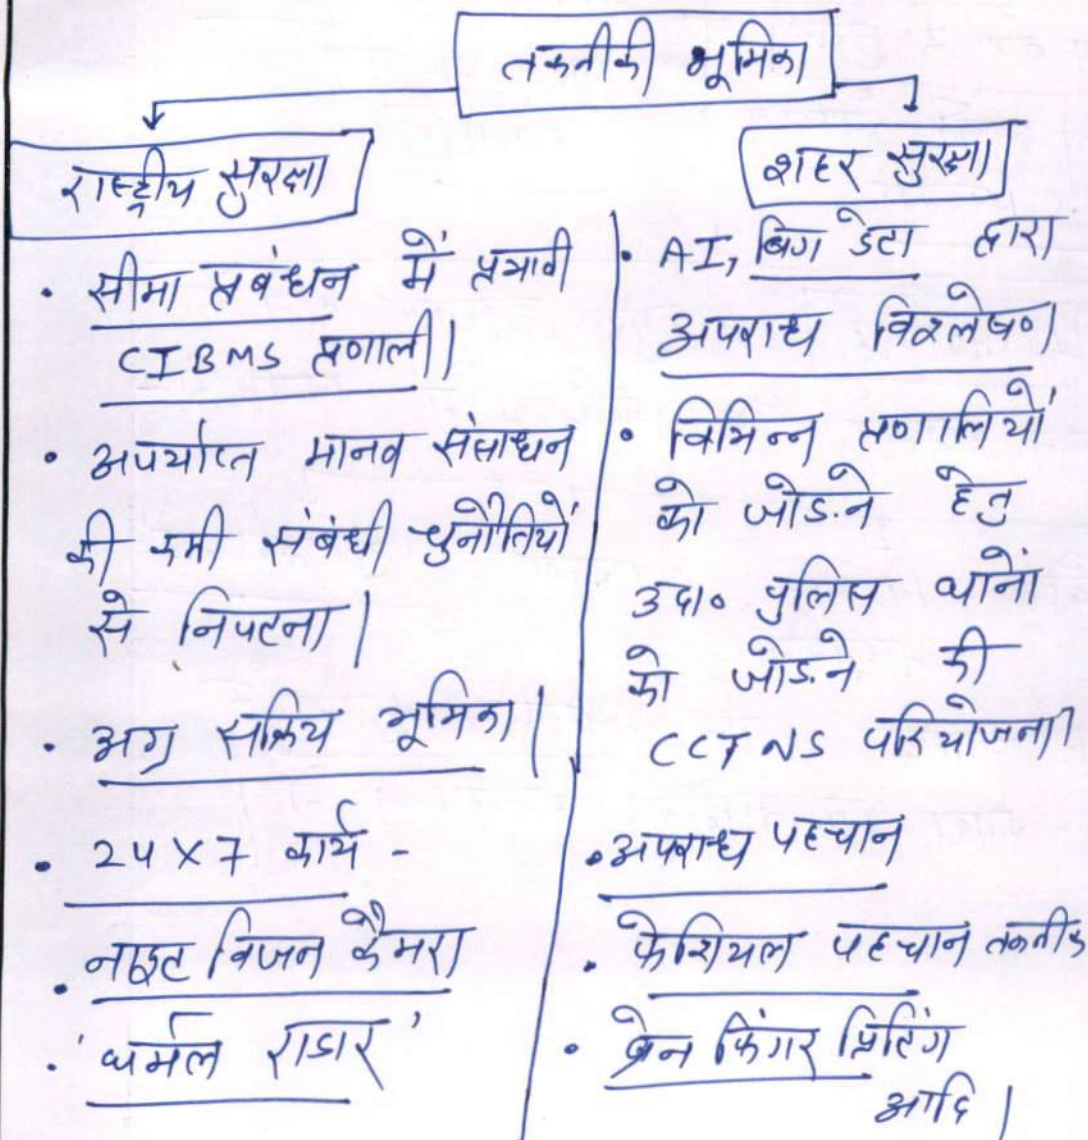 तकनीकी भूमिका
राष्ट्रीय सुरक्षा
• सीमा प्रबंधन में प्रभावी
CIBMS प्रणाली।
• अपर्याप्त मानव संसाधन
की कमी संबंधी चुनौतियों
से निपटना।
• अग्र सक्रिय भूमिका।
• 24 X 7 कार्य -
• नाइट विजन कैमरा
• 'थर्मल राडार'
शहर सुरक्षा
• AI, बिग डेटा द्वारा
अपराध विश्लेषण।
• विभिन्न प्रणालियों
को जोड़ने हेतु
उदा० पुलिस थानों
को जोड़ने की
CCTNS परियोजना।
• अपराध पहचान
• फेशियल पहचान तकनीक
• ब्रेन फिंगर प्रिटिंग
आदि।